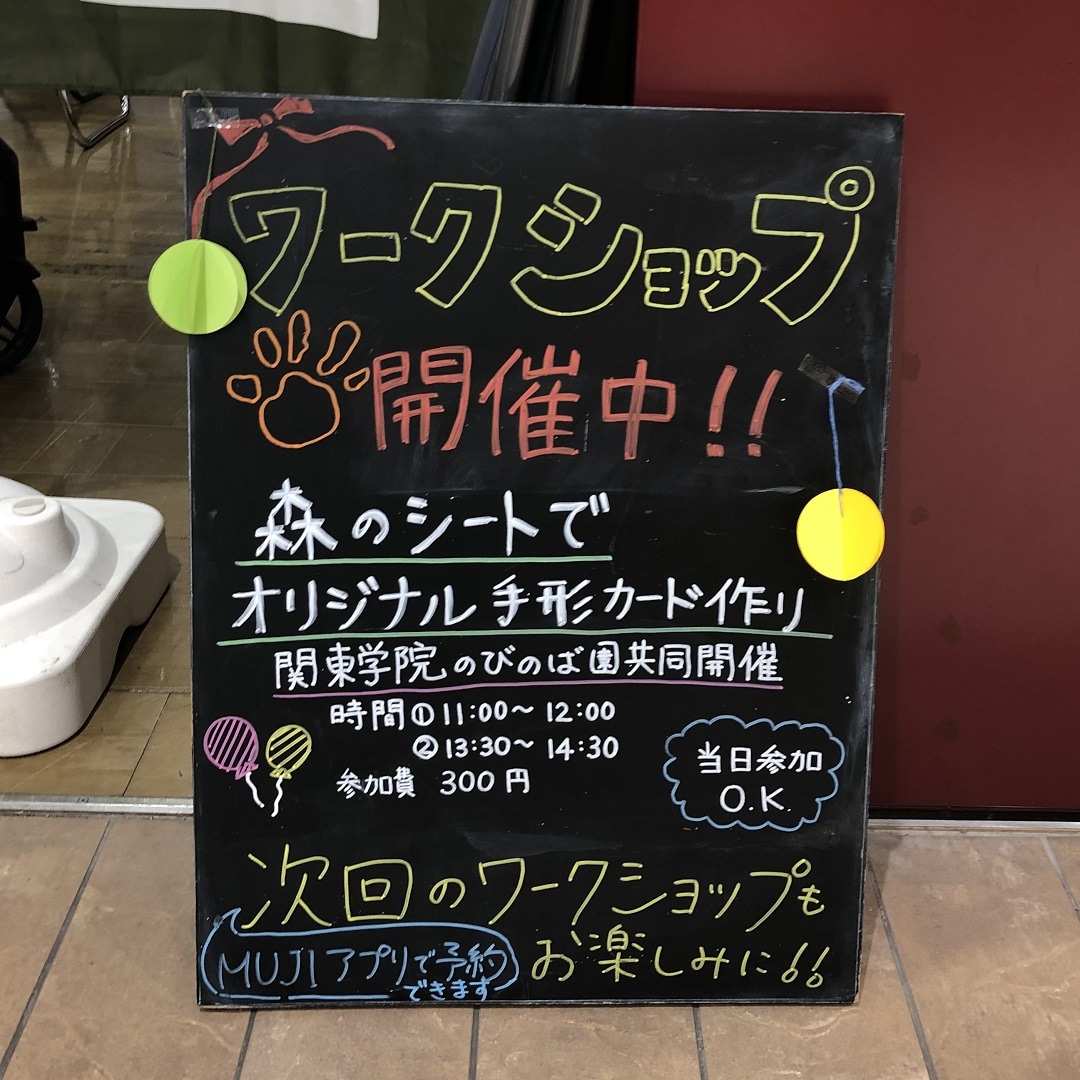 ワークショップ
開催中!!
森のシートで
オリジナル手形カード作り
関東学院のびのば園共同開催
時間①11:00～12:00
②13:30～14:30
参加費 300円
当日参加
O.K.
次回のワークショップも
お楽しみに!!
MUJIアプリで予約
できます